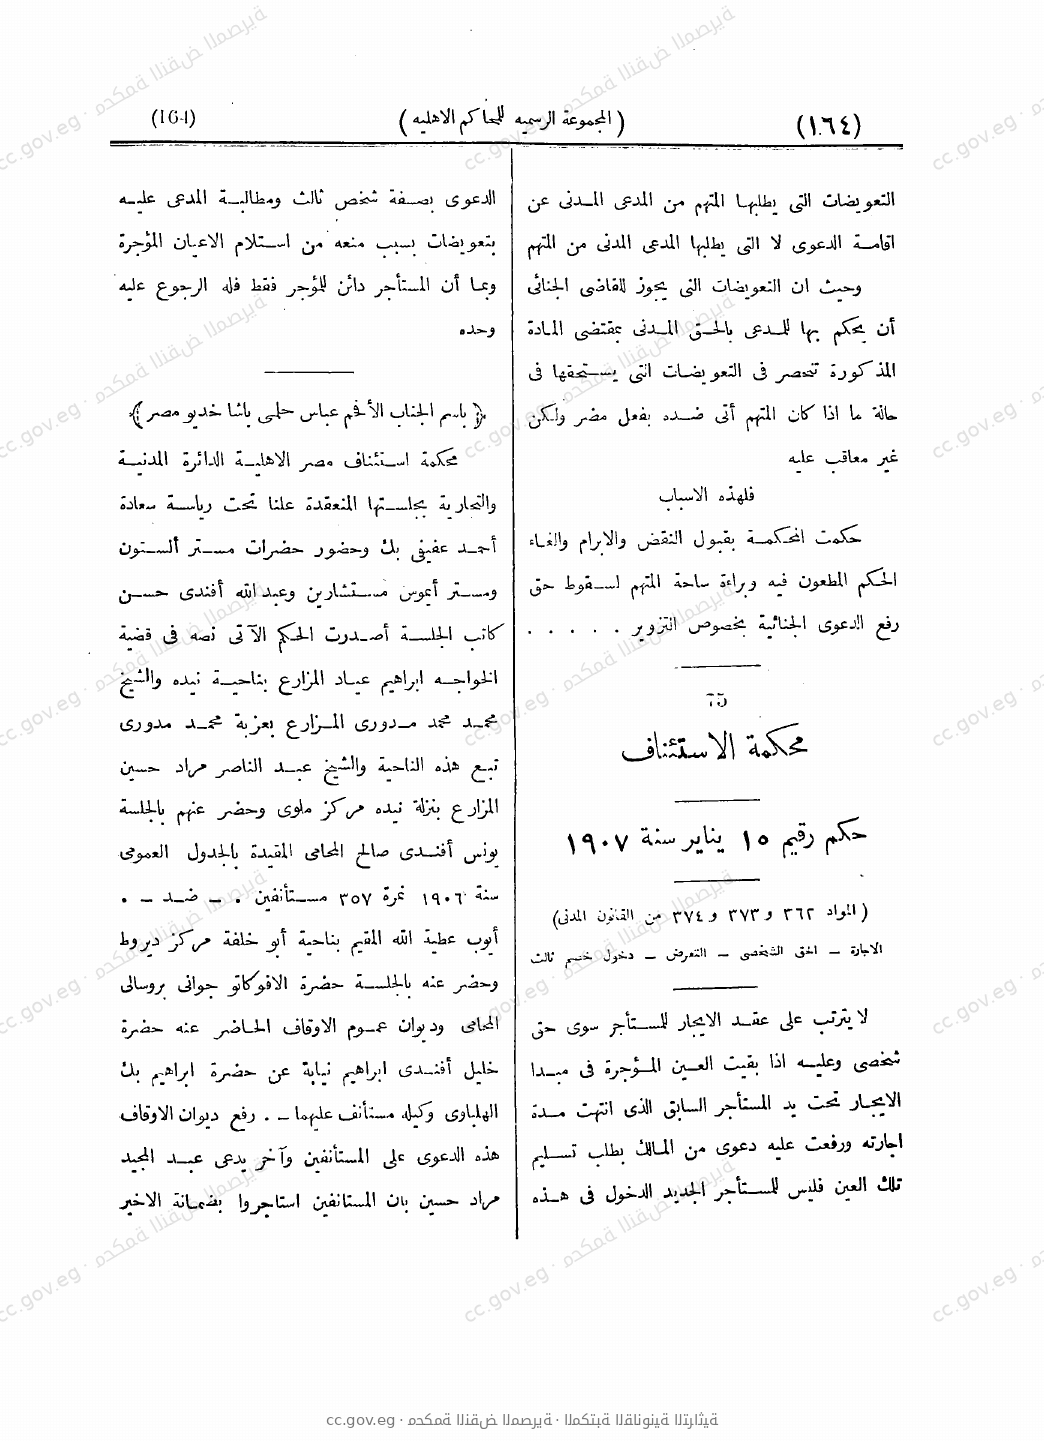 (١٦٤)
(المجموعة الرسمية للمحاكم الاهلية)
(164)
التعويضات التى يطلبها المتهم من المدعى المدنى عن
اقامة الدعوى لا التى يطلبها المدعى المدنى من المتهم
وحيث ان التعويضات التى يجوز للقاضى الجنائى
أن يحكم بها للمدعى بالحق المدنى بمقتضى المادة
المذكورة تنحصر فى التعويضات التى يستحقها فى
حالة ما اذا كان المتهم أتى ضده بفعل مضر ولكن
غير معاقب عليه
فلهذه الاسباب
حكمت المحكمة بقبول النقض والابرام والغاء
الحكم المطعون فيه وبراءة ساحة المتهم لسقوط حق
رفع الدعوى الجنائية بخصوص التزوير . . . . .
75
محكمة الاستئناف
حكم رقيم ١٥ يناير سنة ١٩٠٧
(المواد ٣٦٢ و ٣٧٣ و ٣٧٤ من القانون المدنى)
الاجارة – الحق الشخصى – التعرض – دخول خصم ثالث
لا يترتب على عقد الايجار للمستأجر سوى حق
شخصى وعليه اذا بقيت العين المؤجرة فى مبدا
الايجار تحت يد المستأجر السابق الذى انتهت مدة
اجارته ورفعت عليه دعوى من المالك بطلب تسليم
تلك العين فليس للمستأجر الجديد الدخول فى هذه
الدعوى بصفة شخص ثالث ومطالبة المدعى عليه
بتعويضات بسبب منعه من استلام الاعيان المؤجرة
وبما أن المستأجر دائن للمؤجر فقط فله الرجوع عليه
وحده
﴿باسم الجناب الأفخم عباس حلمى باشا خديو مصر﴾
محكمة استئناف مصر الاهلية الدائرة المدنية
والتجارية بجلستها المنعقدة علنا تحت رياسة سعادة
أحمد عفيفى بك وحضور حضرات مستر ألستون
ومستر أيموس مستشارين وعبد الله أفندى حسن
كاتب الجلسة أصدرت الحكم الآتى نصه فى قضية
الخواجه ابراهيم عياد المزارع بناحية نيده والشيخ
محمد محمد مدورى المزارع بعزبة محمد مدورى
تبع هذه الناحية والشيخ عبد الناصر مراد حسين
المزارع بنزلة نيده مركز ملوى وحضر عنهم بالجلسة
يونس أفندى صالح المحامى المقيدة بالجدول العمومى
سنة ١٩٠٦ نمرة ٣٥٧ مستأنفين . – ضد – .
أيوب عطية الله المقيم بناحية أبو خلفة مركز ديروط
وحضر عنه بالجلسة حضرة الافوكاتو جوانى بروسالى
المحامى وديوان عموم الاوقاف الحاضر عنه حضرة
خليل أفندى ابراهيم نيابة عن حضرة ابراهيم بك
الهلباوى وكيله مستأنف عليهما – . رفع ديوان الاوقاف
هذه الدعوى على المستأنفين وآخر يدعى عبد المجيد
مراد حسين بان المستانفين استاجروا بضمانة الاخير
cc.gov.eg · محكمة النقض المصرية · المكتبة القانونية التراثية